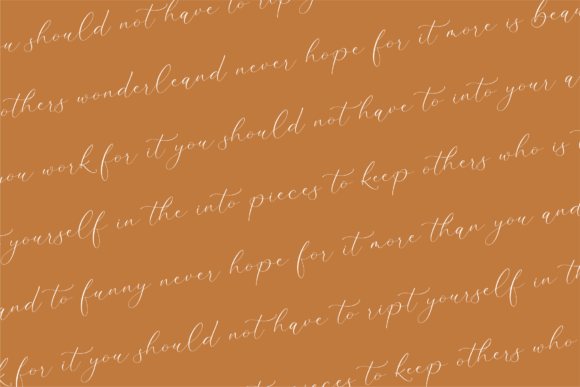 ou should not have to rip y
others wonderleand never hope for it more is beau
you work for it you should not have to into your a
t yourself in the into pieces to keep others who is
and to funny never hope for it more than you and
k for it you should not have to ript yourself in th
to pieces to keep others who